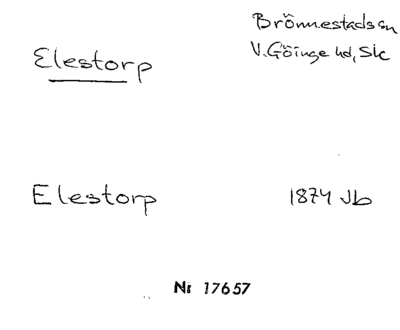 Brönnestads sn
Elestorp
V. Göinge hd, Sk
Elestorp
1874 Jb
Nr 17657